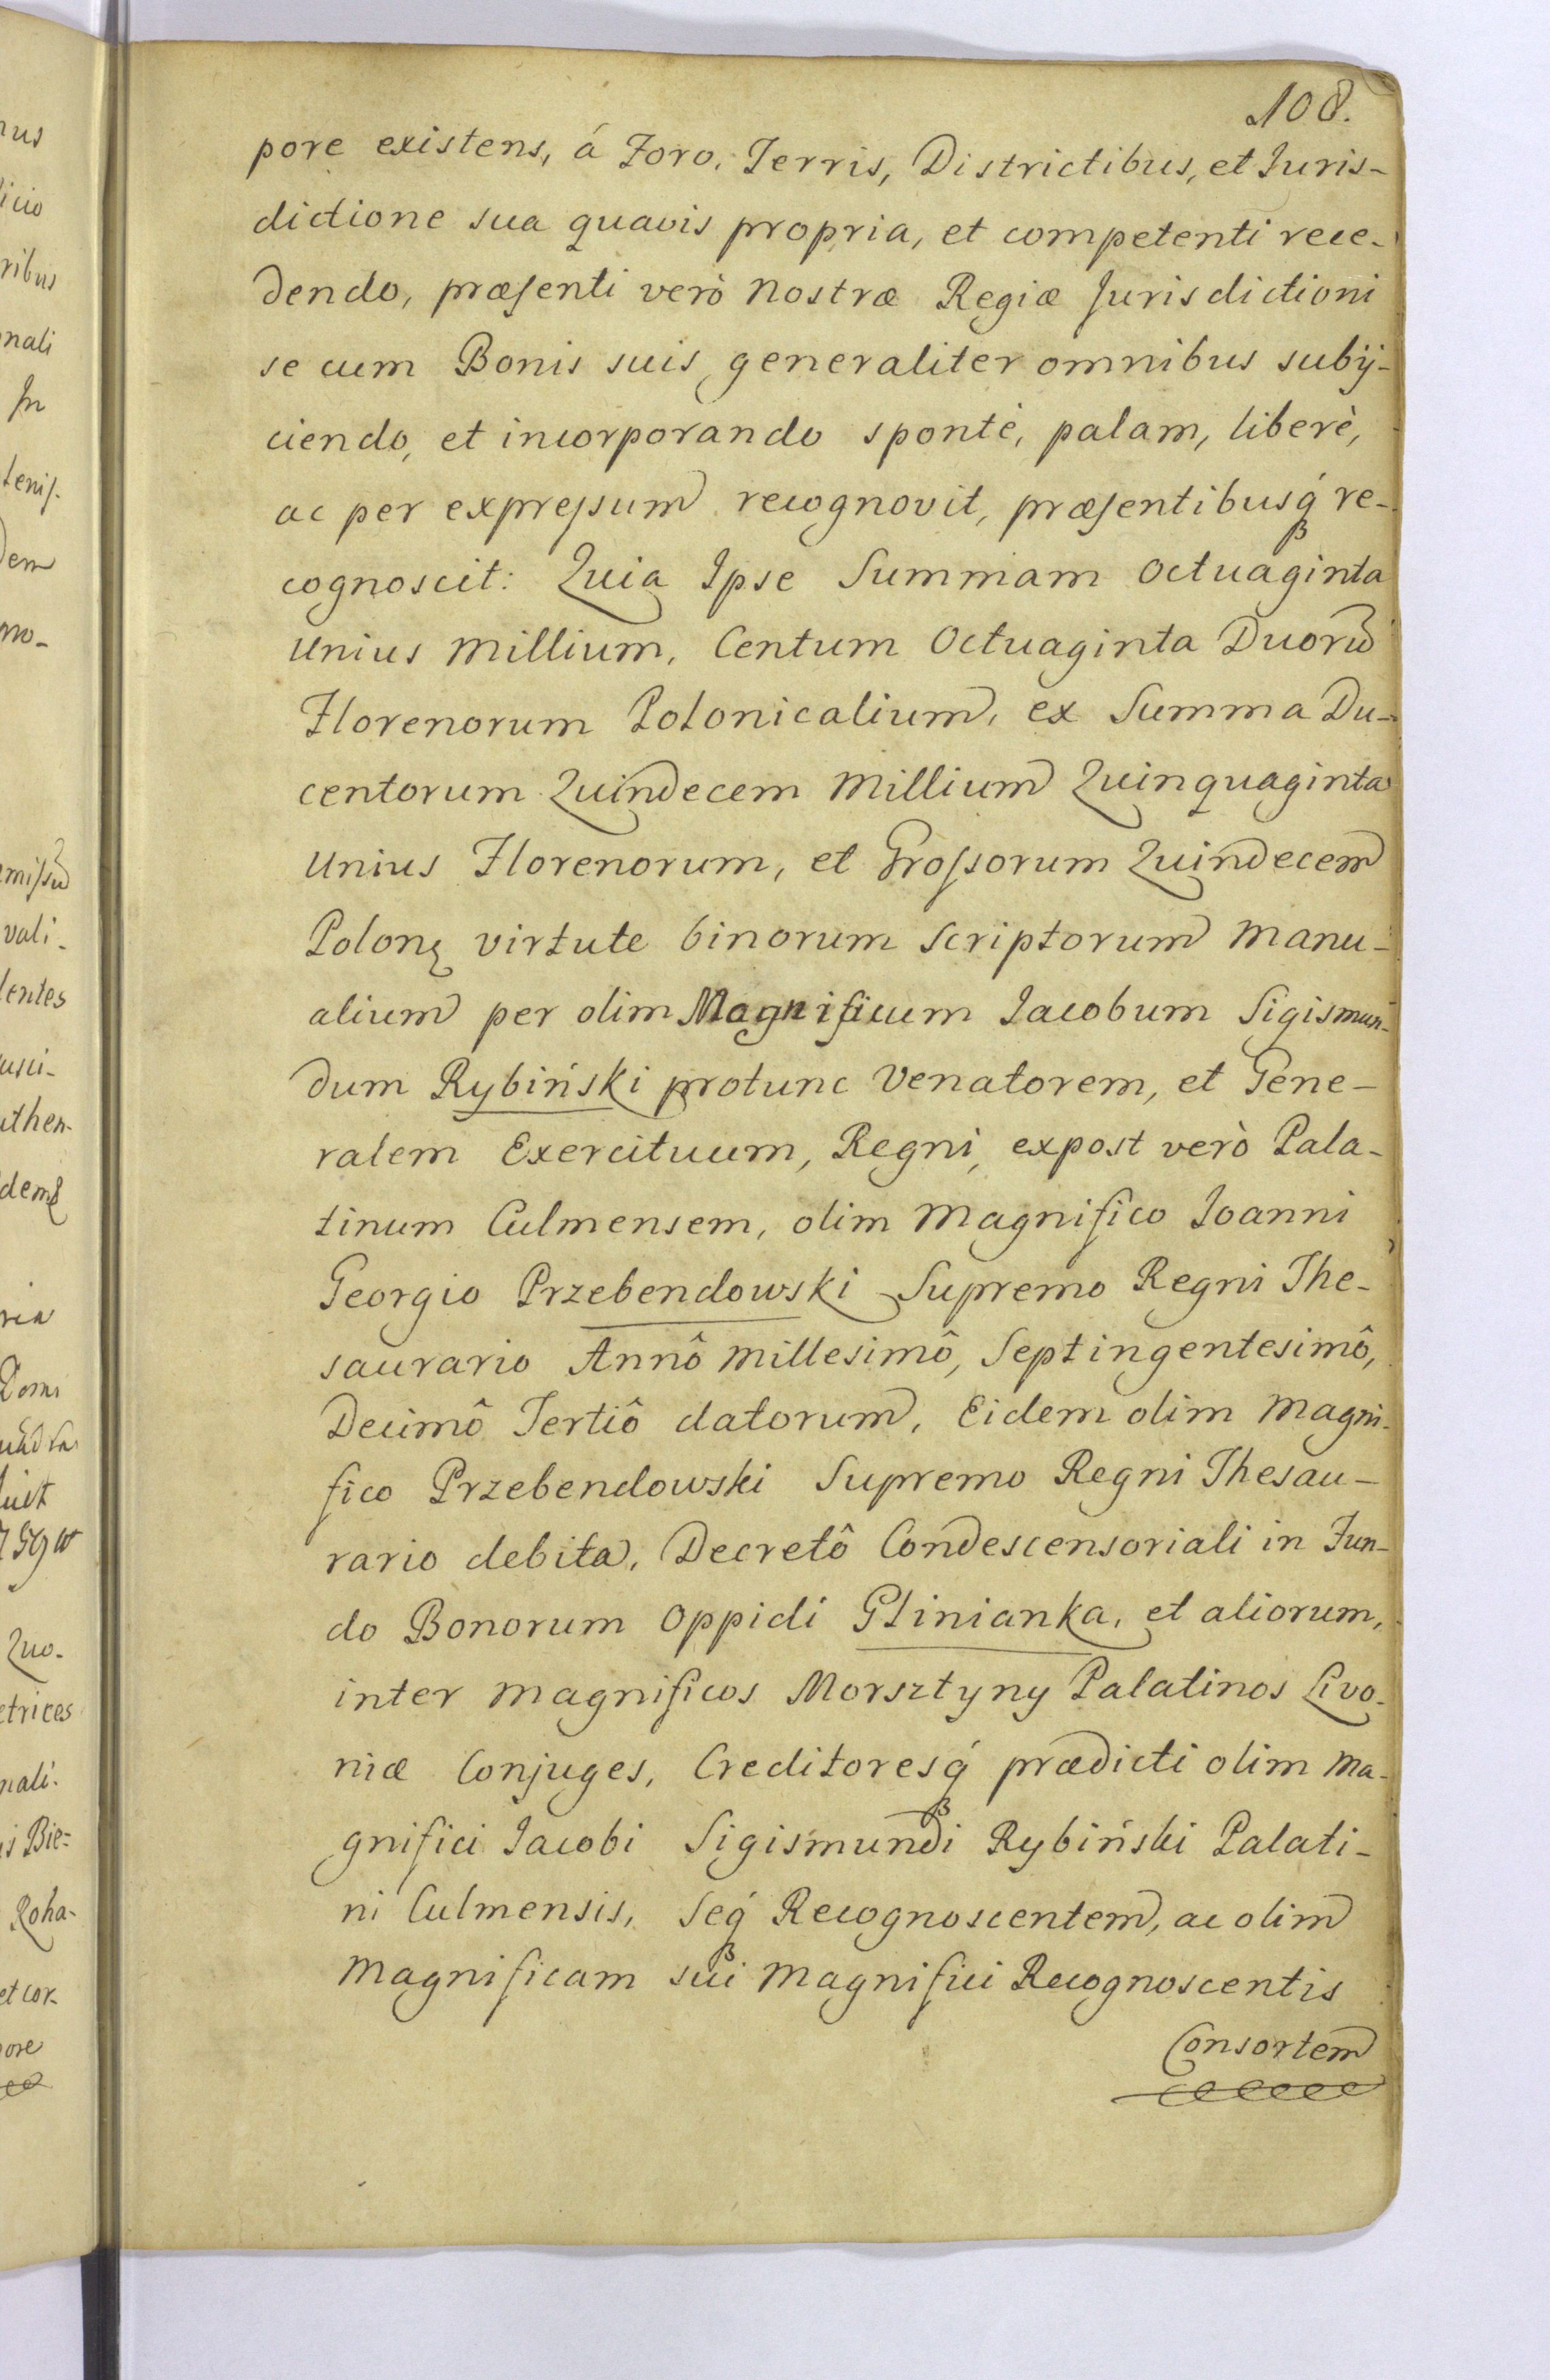 108.
pore existens, á Foro, Terris, Districtibus, et Juris-
dictione sua quavis propria, et competenti rece-
dendo, præsenti verò Nostræ Regiæ Jurisdictioni
se cum Bonis suis generaliter omnibus subij-
ciendo, et incorporando spontè, palam, liberè,
ac per expressum recognovit, præsentibusq́ re-
cognoscit: Quia Ipse Summam Octuaginta
Unius Millium, Centum Octuaginta Duorū
Florenorum Polonicalium, ex Summa Du-
centorum Quindecem Millium Quinquaginta
Unius Florenorum, et Grossorum Quindecem
Polonę virtute binorum Scriptorum Manu-
alium per olim Magnificum Jacobum Sigismun-
dum Rybiński protunc Venatorem, et Gene-
ralem Exercituum, Regni, expost verò Pala-
tinum Culmensem, olim Magnifico Joanni
Georgio Przebendowski Supremo Regni The-
saurario Annô Millesimô, Septingentesimô,
Decimô Tertiô datorum, Eidem olim Magni-
fico Przebendowski Supremo Regni Thesau-
rario debita, Decretô Condescensoriali in Fun-
do Bonorum Oppidi Glinianka, et aliorum,
inter Magnificos Morsztyny Palatinos Livo-
niæ Conjuges, Creditoresq́ prædicti olim Ma-
gnifici Jacobi Sigismundi Rybiński Palati-
ni Culmensis, Seq́ Recognoscentem, ac olim
Magnificam sui Magnifici Recognoscentis
Consortem
nus
ribus
nali
In
dem
mo-
vali-
dentes
usci-
uthen-
ria
Quo-
etrices
nali-
is Bie=
Roha-
et cor-
pore